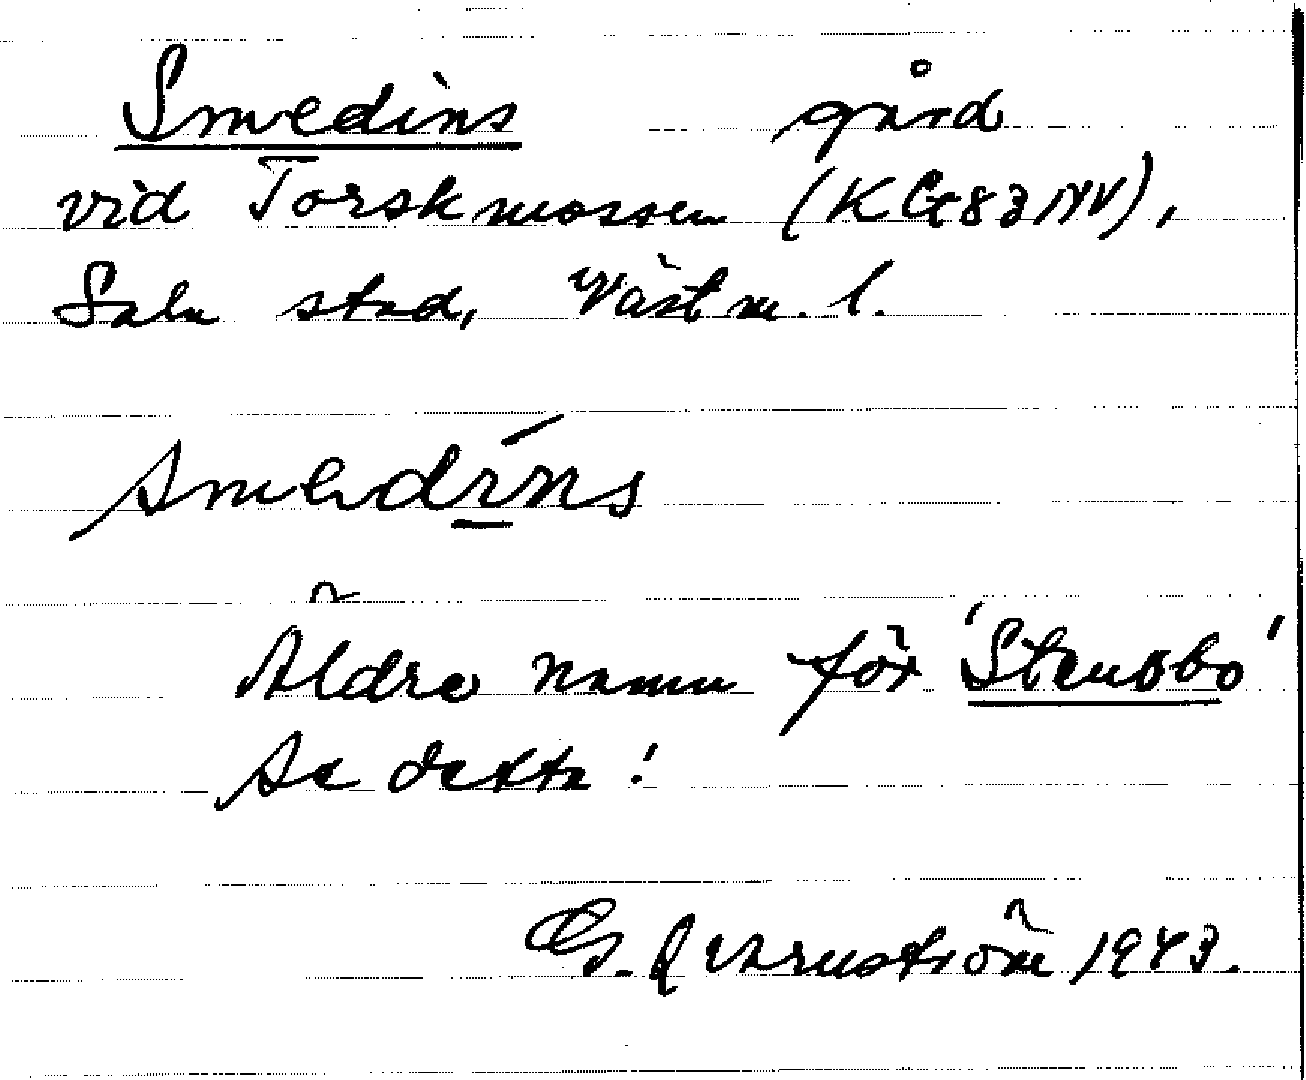 Smedins gård
vid Torskmossen (KG83NV),
Sala stad, Västm. l.
smedíns
Äldre namn för 'Stensbo'
Se detta!
G. Qvarnström 1943.